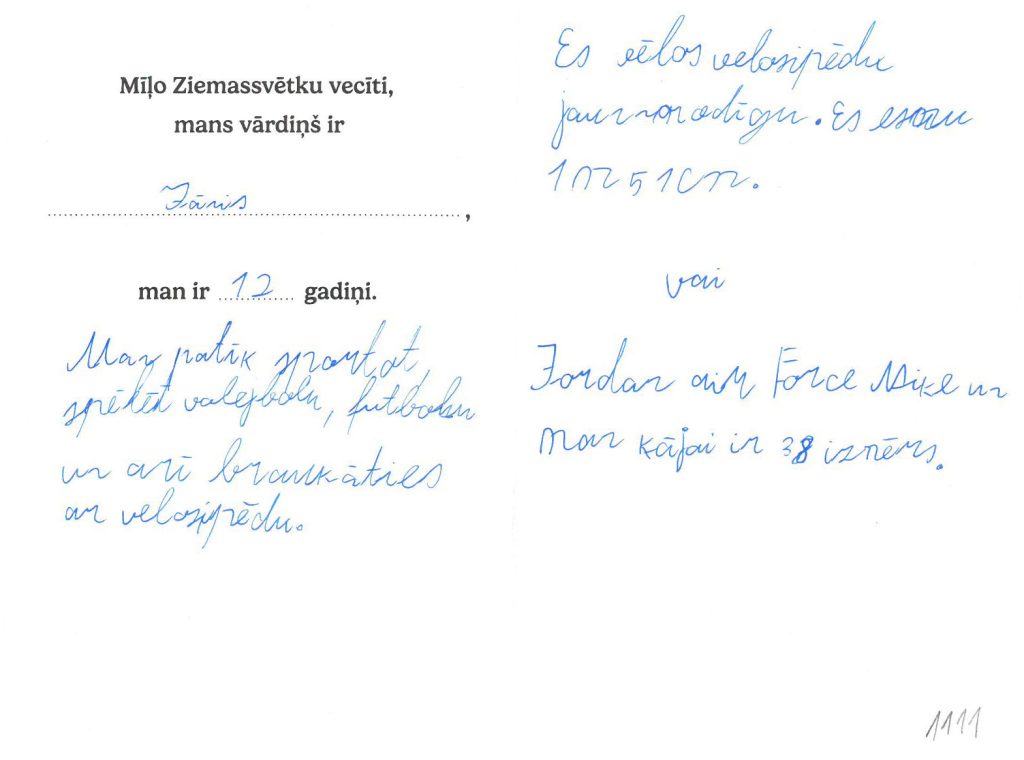 Mīļo Ziemassvētku vecīti,
mans vārdiņš ir
Jānis,
man ir 12 gadiņi.
Man patīk sportot,
spēlēt valejbolu, futbolu
un arī braukāties
ar velosipēdu.
Es vēlos velosipēdu
jaunorodīgu. Es esmu
1m51cm.
vai
Jordan air Force Niķe un
man kājai ir 38 izmērs.
1111